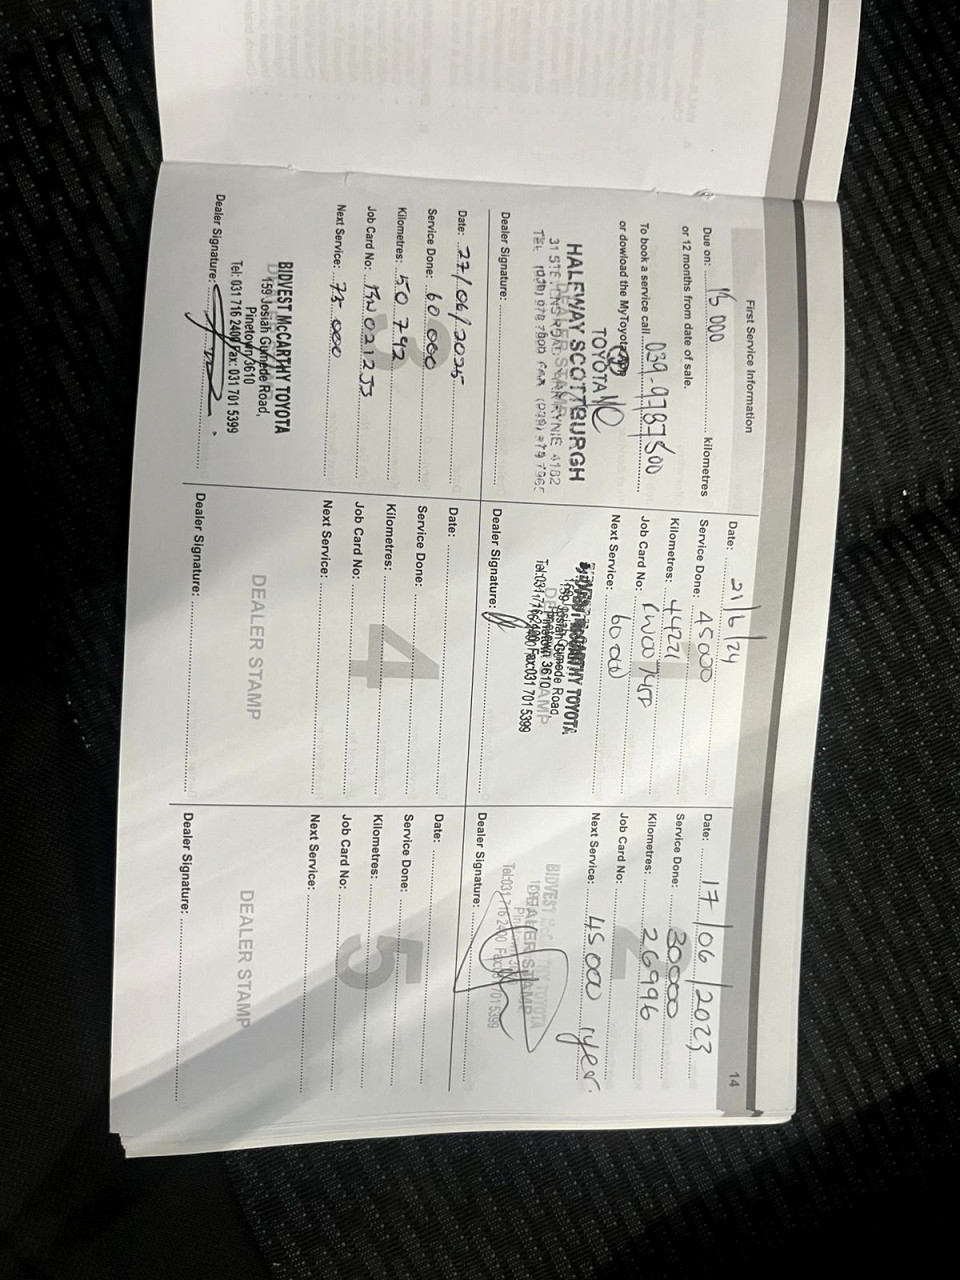 First Service Information
Due on: 15 000 kilometres
or 12 months from date of sale.
To book a service call 039-9787500
or dowload the MyToyota
TOYOTA
HALFWAY SCOTTBURGH
TEL (039) 978 7900 FAX (039)
Dealer Signature:
Date: 21/6/24
Service Done: 45000
Kilometres: 44221
Job Card No:
Next Service: 60 000
BIDVEST McCARTHY TOYOTA
159 Josiah Gumede Road
Pinetown 3610
Tel:031 716 2400 Fax:031 701 5399
Dealer Signature:
14
Date: 17/06/2023
Service Done: 30000
Kilometres: 26996
Job Card No:
Next Service: 45 000 1yer.
2
BIDVEST McCARTHY TOYOTA
DEALER STAMP
Tel:031 716 2400 Fax:031 701 5399
Dealer Signature:
Date: 27/06/2025
Service Done: 60 000
Kilometres: 50 792
Job Card No:
Next Service: 75 000
3
BIDVEST McCARTHY TOYOTA
159 Josiah Gumede Road,
Pinetown 3610
Tel: 031 716 2400 Fax: 031 701 5399
Dealer Signature:
Date:
Service Done:
Kilometres:
Job Card No:
Next Service:
4
DEALER STAMP
Dealer Signature:
Date:
Service Done:
Kilometres:
Job Card No:
Next Service:
5
DEALER STAMP
Dealer Signature: